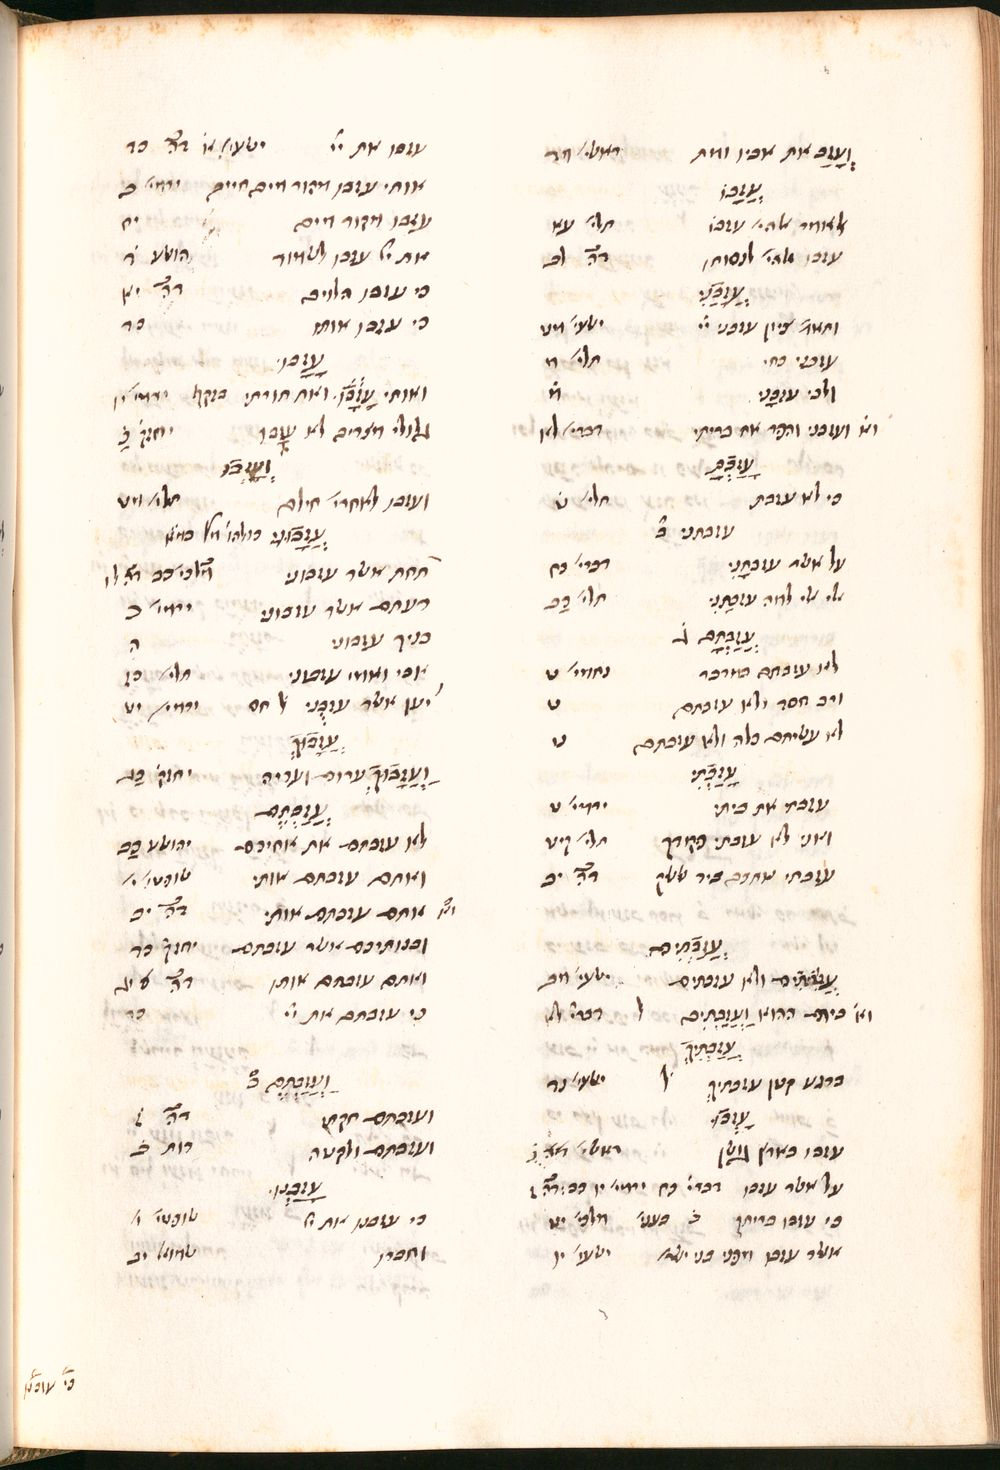 וְעָזַב את אביו ואת ראשי׳
עֲזָבוֹ
לאמר אלהי׳ עזבו תלי׳ עא
עזבו אלהי׳ לנסותו דה׳ לב
עֲזָבַנִי
ותאמר ציון עזבני יי׳ ישעי׳ מט
עזבני כחי תלי׳
ולבי עזבני מ׳
וא׳ ועזבני והפר את בריתי דברי׳ לא
עָזַבְתָּ
כי לא עזבת תלי׳ ט׳
עזבתני ב׳
על אשר עזבתני דברי׳ כח
אלי אלי למה עזבתני תלי׳ כב
עֲזַבְתָּם ג׳
לא עזבתם במדבר נחמי׳ ט
ורב חסד ולא עזבתם ט
לא עשיתם כלה ולא עזבתם ט
עָזַבְתִּי
עזבתי את ביתי ירמי׳
ואני לא עזבתי פקודך תלי׳ קיט
עזבתי אתכם ביד שישק דה׳ יב
עֲזַבְתִּים
עשיתים ולא עזבתים ישעי׳ מב
וא׳ ביום ההוא וַעֲזַבְתִּים ל׳ דברי׳ לא
עֲזַבְתִּיךְ
ברגע קטן עזבתיך ל׳ ישעי׳ נד
עָזְבוּ
עזבו בארץ גושן ראשי׳
על אשר עזבו דברי׳ כח ירמי׳ כב דה׳
כי עזבו בריתך ב׳ בענ׳ מלכי׳ יט
אשר עזבו מפני בני ישר׳ ישעי׳ יז
עזבו את יי׳ ישעי׳ א׳ דה׳ כד
אותי עזבו מקור מים חיים ירמי׳ ב
עזבו מקור מים יח
את יי׳ עזבו לשמור הושע ד׳
כי עזבו הלוים דה׳ יא
כי עזבו אותו כד
עָזָבוּ
ואותי עָזָבוּ ואת תורתי בזקף ירמי׳
גלולי מצרים לא עזבו יחזק׳ כ׳
וְעָזְבוּ
ועזבו לאחרי׳ חילם תלי׳ מט
עֲזָבוּנִי
תחת אשר עזבוני
רעתם אשר עזבוני ירמי׳
בניך עזבוני ה
אבי ואמי עזבוני תלי׳ כז
יען אשר עזבֻני ל׳ חס׳ ירמי׳ יט
עֲזָבוּךְ
וַעֲזָבוּךְ ערום ועריה יחזק׳
עֲזַבְתֶּם
לא עזבתם את אחיכם יהושע כב
ואתם עזבתם אותי שופטי׳ י׳
אתם עזבתם אותי דה׳ יב
ובנותיכם אשר עזבתם יחזק׳ כד
ואתם עזבתם אותו דה׳ יג
כי עזבתם את יי׳ כד
וַעֲזַבְתֶּם ב׳
ועזבתם חקתי דה׳ ז׳
ועזבתם ולקטה רות ב׳
עָזַבְנוּ
כי עזבנו את יי׳ שופטי׳ י׳
וחברו שמואל יב
כי עזבנו